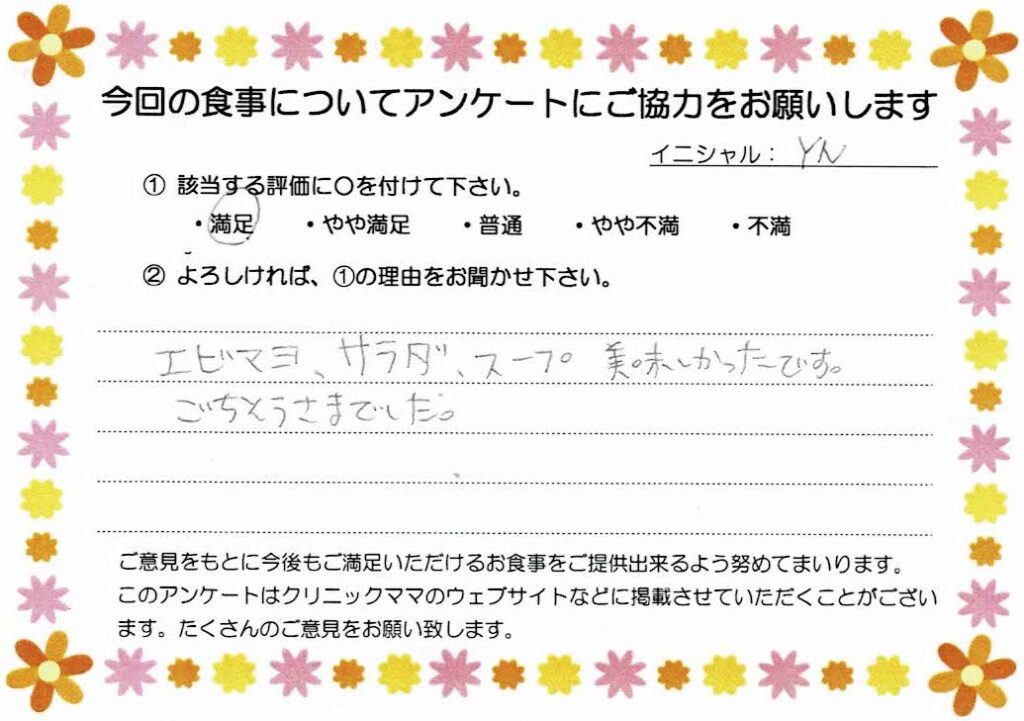 今回の食事についてアンケートにご協力をお願いします
イニシャル： YN
① 該当する評価に○を付けて下さい。
・満足 ・やや満足 ・普通 ・やや不満 ・不満
② よろしければ、①の理由をお聞かせ下さい。
エビマヨ、サラダ、スープ 美味しかったです。
ごちそうさまでした。
ご意見をもとに今後もご満足いただけるお食事をご提供出来るよう努めてまいります。
このアンケートはクリニックママのウェブサイトなどに掲載させていただくことがござい
ます。たくさんのご意見をお願い致します。